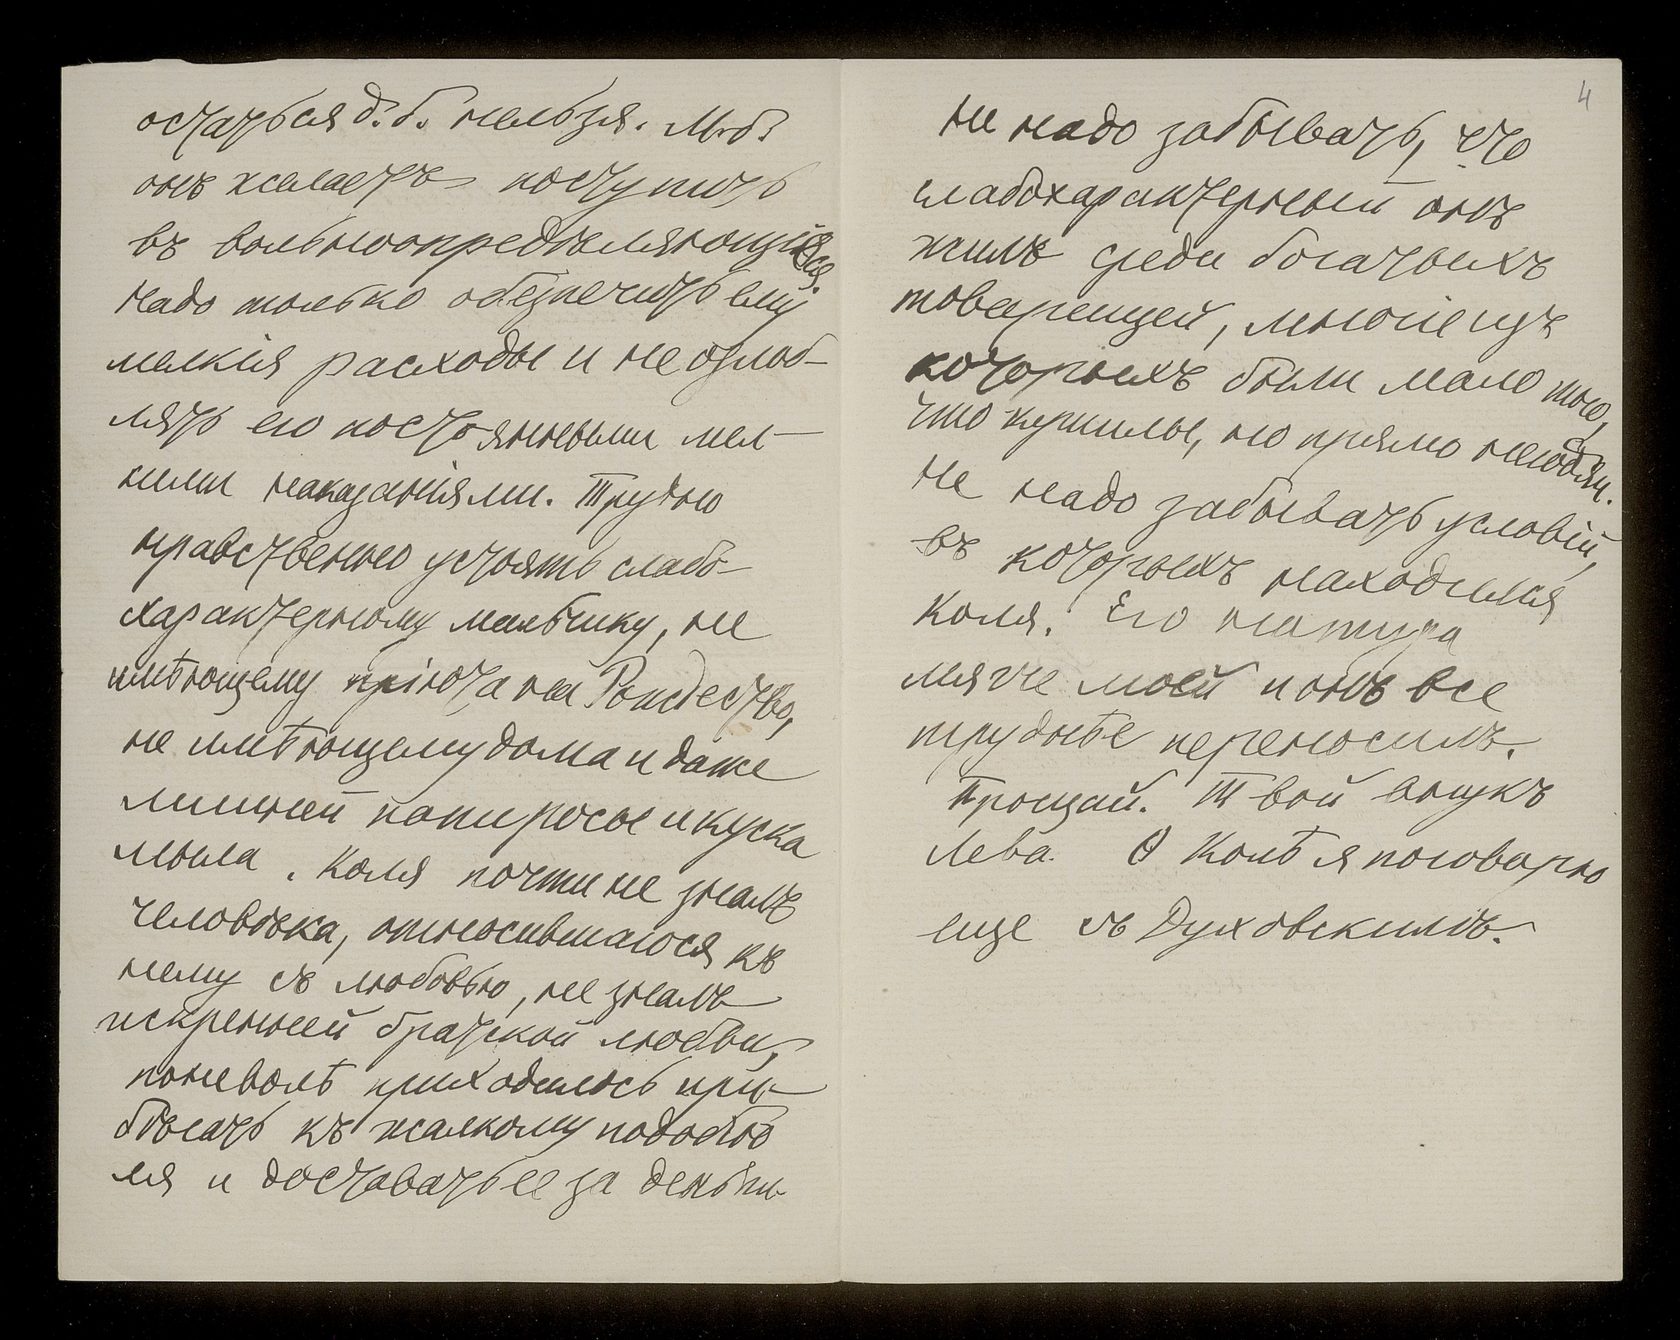 остаться д. б. нельзя. М. б.
онъ желаетъ поступить
въ вольноопредѣляющіеся.
Надо только обезпечить ему
мелкія расходы и не озлоб-
лять его постоянными мел-
кими наказаніями. Трудно
нравственно устоять слабо-
характерному мальчику, не
имѣющему пріюта на Рождество,
не имѣющему дома и даже
лишней папиросы и куска
мыла. Коля почти не зналъ
человѣка, относившагося къ
нему съ любовью, не зналъ
искренней братской любви,
поневолѣ приходилось при-
бѣгать къ жалкому подобію
ея и доставать ее за деньги.
4
Не надо забывать, что
слабохарактерный онъ
жилъ среди богатыхъ
товарищей, многіе изъ
которыхъ были мало того,
что кутилы, но прямо негодяи.
Не надо забывать условій,
въ которыхъ находился
Коля. Его натура
мягче моей и онъ все
труднѣе переносилъ.
Прощай. Твой внукъ
Лева. О Колѣ я поговорю
еще съ Духовскимъ.